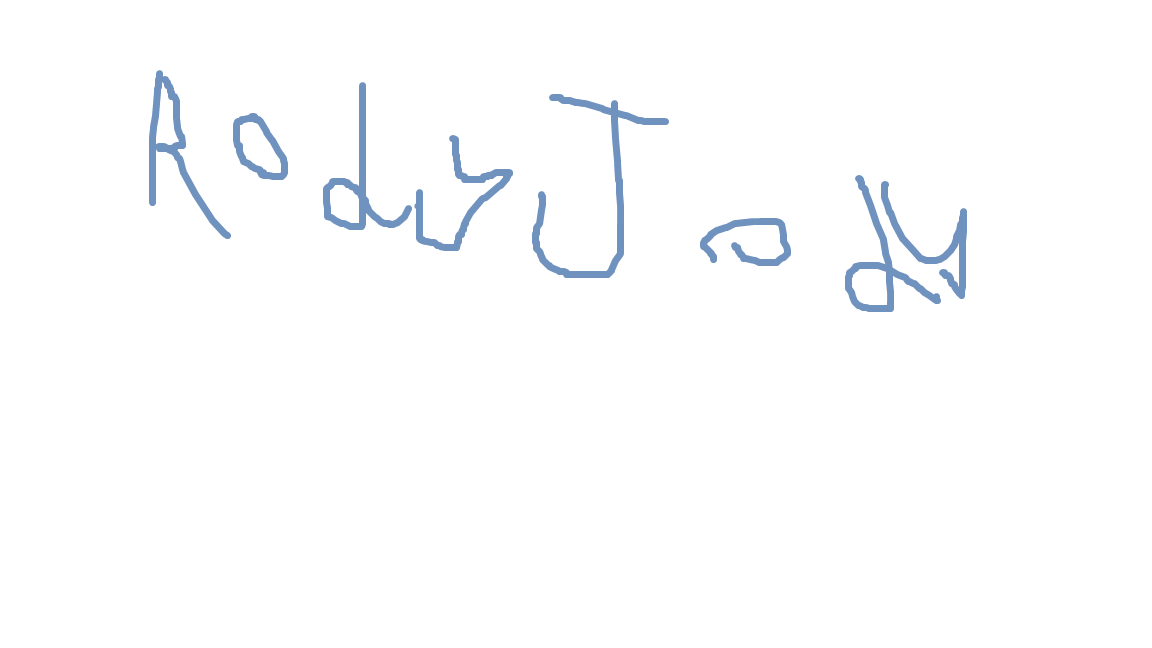 Rody Jody